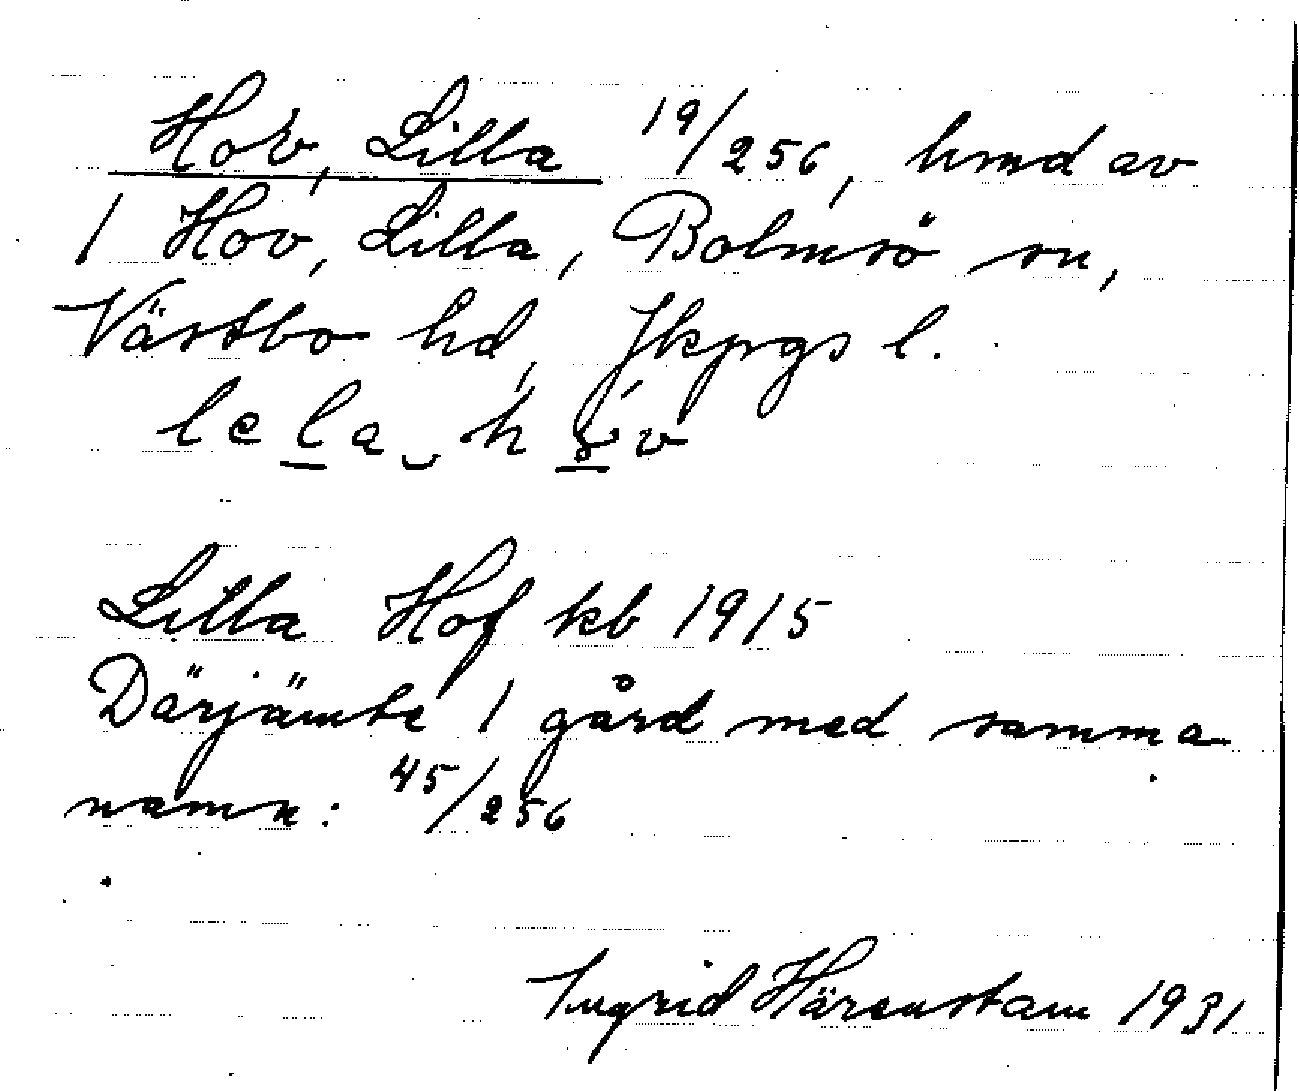 Hov, Lilla 19/256, hmd av
1 Hov, Lilla, Bolmsö sn,
Västbo hd, Jkpgs l.
Lilla Hof kb 1915
Därjämte 1 gård med samma
namn: 45/256
Ingrid Härenstam 1931